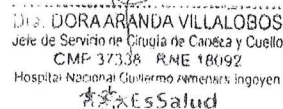 Dra. DORA ARANDA VILLALOBOS
Jefe de Servicio de Cirugía de Cabeza y Cuello
CMP 37338 RNE 18092
Hospital Nacional Guillermo Almenara Irigoyen
EsSalud